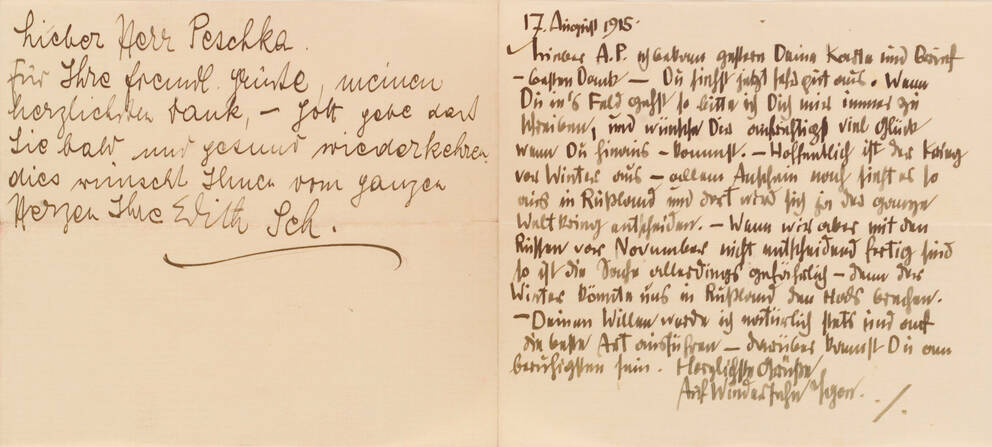 Lieber Herr Peschka.
für Ihre freundl. Grüße, meinen
herzlichsten Dank, – Gott gebe dass
Sie bald und gesund wiederkehren
dies wünscht Ihnen vom ganzen
Herzen Ihre Edith Sch.
17. August 1915.
Lieber A.P. ich bekam gestern Deine Karte und Brief
– besten Dank – Du siehst jetzt sehr gut aus. Wenn
Du in's Feld gehst so bitte ich Dich mir immer zu
schreiben, und wünsche Dir aufrichtigst viel Glück
wenn Du hinaus – kommst. – Hoffentlich ist der Krieg
vor Winter aus – allem Anschein nach sieht es so
aus in Rußland und dort wird sich ja der ganze
Weltkrieg entscheiden. – Wenn wir aber mit den
Russen vor November nicht entscheidend fertig sind
so ist die Sache allerdings gefährlich – denn der
Winter könnte uns in Rußland den Hals brechen.
– Deinen Willen werde ich natürlich stets und auf
die beste Art ausführen – darüber kannst Du am
beruhigsten sein. Herzlichste Grüße
Auf Wiedersehn Egon.